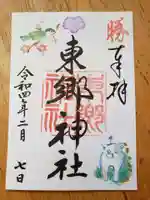 勝
奉拝
東郷神社
令和四年二月
七日